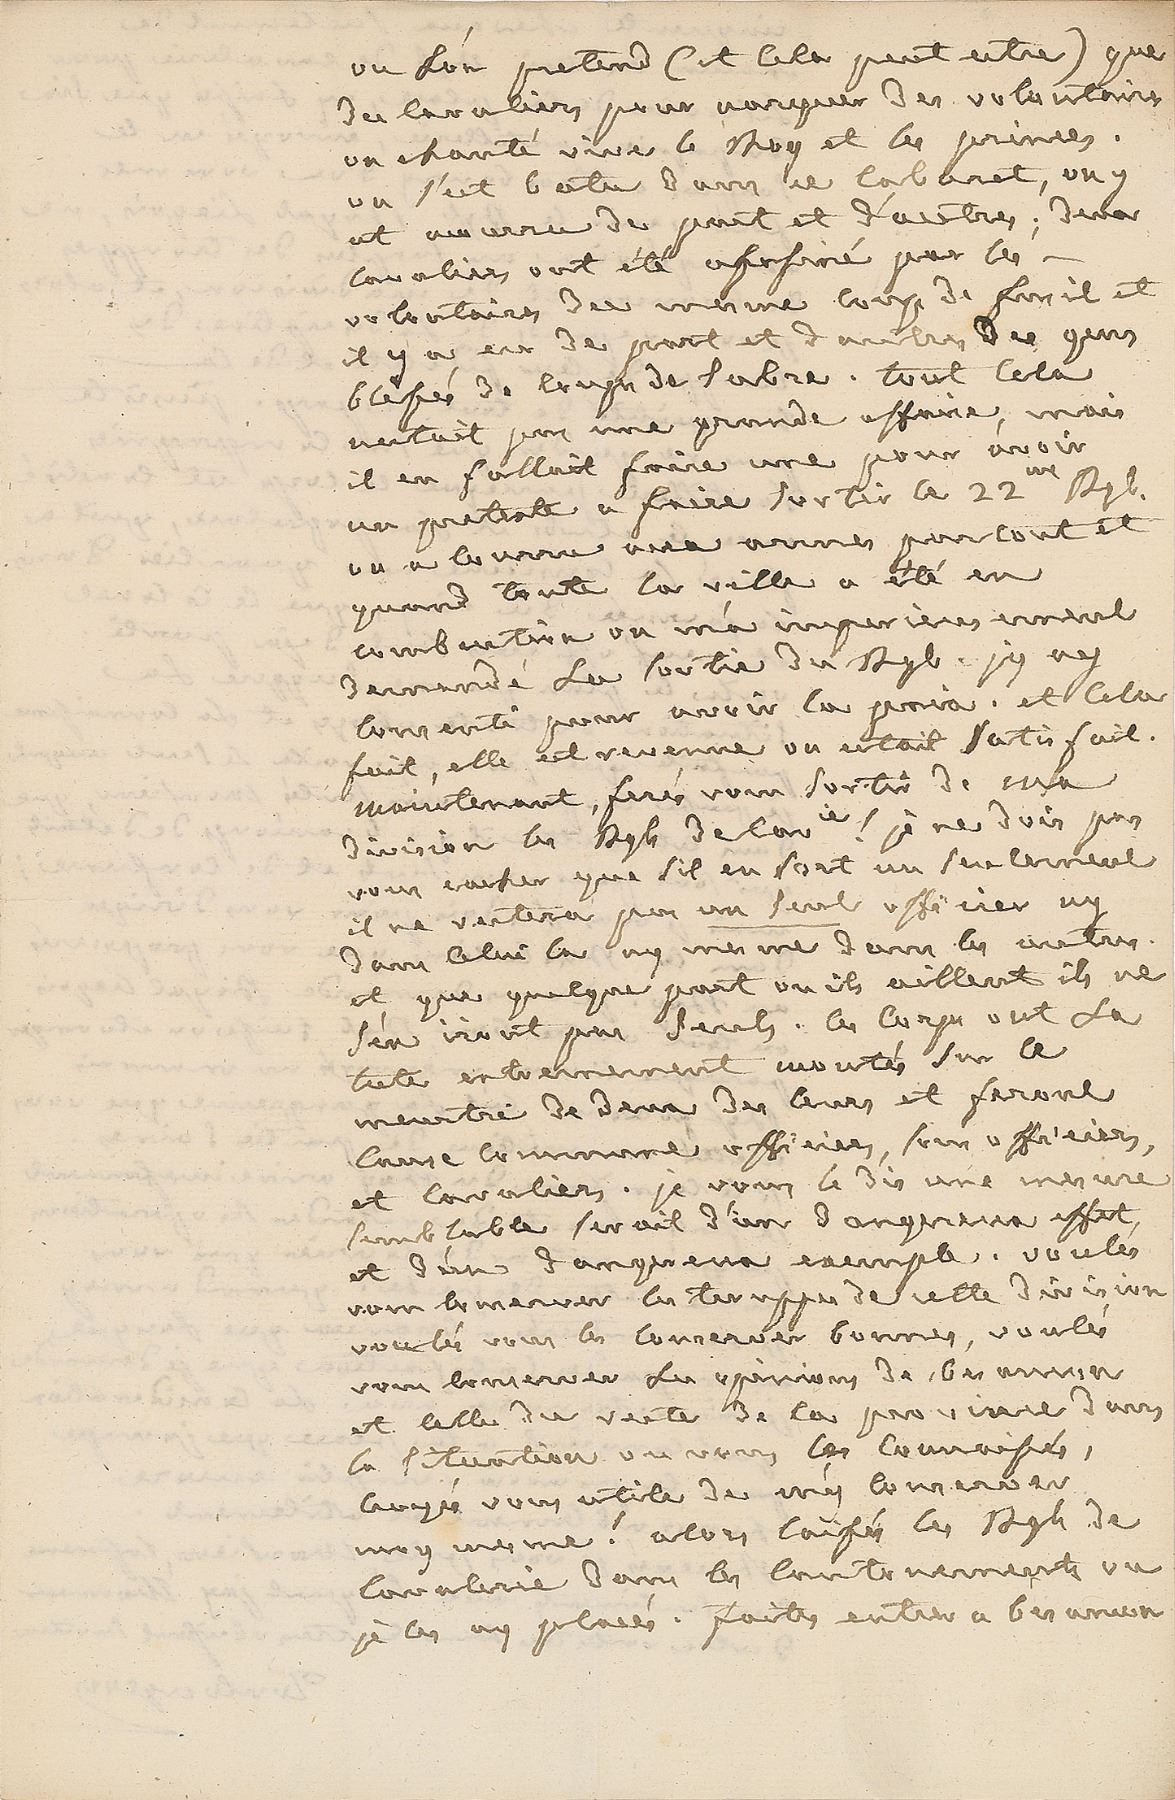 ou l'ón pretend (et cela peut estre) que
des cavaliers pour narguer des volontaires
on chanté vive le Roy et les princes.
on s'est batu dans ce cabaret, on y
at acourru de part et d'autres; deux
cavaliers ont été assassiné par les
volontaires des mesme coup de fusil et
il y a eu de part et dautres des gens
blessés de coups de sabre. tout cela
nestait pas une grande affaire, mais
il en fallait faire une pour avoir
un pretexte a faire sortir le 22me Rgt.
on a courru aux armes partout et
quand toute la ville a été en
combustion on m'a imperieusement
demandé la sortie du Rgt. jy ay
consenti pour avoir la paix. et cela
fait, elle est revenue on estait satisfait.
maintenant, ferés vous sortir de ma
division les Rgts de cavie? je ne dois pas
vous cacher que sil en sort un seulement
il ne restera pas un seul officier ny
dans celui la ny mesme dans les autres.
et que quelque part ou ils aillent ils ne
s'én iront pas seuls. les corps ont la
teste extremement montés sur le
meurtre de deux des leurs et feront
cause commune officiers, sous officiers,
et cavaliers. je vous le dis une mesure
semblable serait d'un dangereux effet,
et d'ún dangereux exemple. voulés
vous conserver les trouppes de cette division
voulés vous les conserver bonnes, voulés
vous conserver les opinions de besancon
et celle du reste de la province dans
la situation ou vous les connaissés,
croyés vous utile de m'ÿ conserver
moy mesme? alors laissés les Rgts de
cavalerie dans les cantonements ou
je les ay placés. faites entrer a besancon